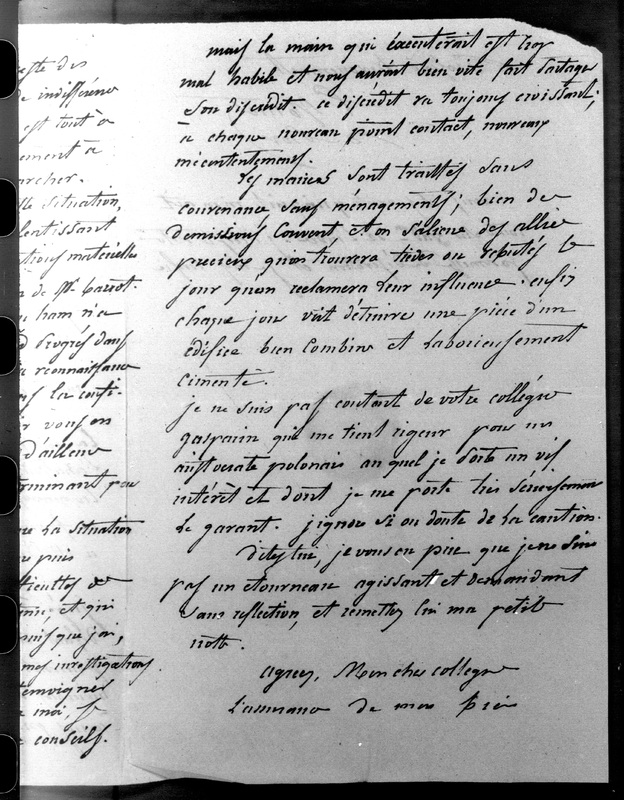 este des
de indifférence
est tout à
ement à
archer.
la situation,
lentissant
tions matérielles
de Mr barrot.
ham n'a
progrès dans
reconnaissance
la conti-
vous en
d'ailleurs
erminant pour
la situation
puis
et qui
puis que j'ai,
mes investigations
temoigner
moi, je
conseils.
mais la main qui éxécuterait est trop
mal habile et nous aurait bien vite fait partager
son discrédit. ce discrédit va toujours croissant;
à chaque nouveau point contact, nouveaux
mécontentemens.
les maires sont traittés sans
convenance, sans ménagements; bien des
démissions couvent, et on s'aliene des alliés
precieux qu'on trouvera tièdes ou rebutés le
jour qu'on reclamera leur influence. enfin
chaque jour voit détruire une pièce d'un
édifice bien combiné et laborieusement
cimenté.
je ne suis pas contant de votre collégue
gasparin qui me tient rigeur pour un
aristocrate polonais auquel je porte un vif
intérêt et dont je me porte très sérieusement
le garant. j'ignore si on doute de la caution.
Dites lui, je vous en prie que je ne suis
pas un etourneau agissant et demandant
sans reflection, et remettez lui ma petite
note.
agréez, Mon cher collegue
l'assurance de mes